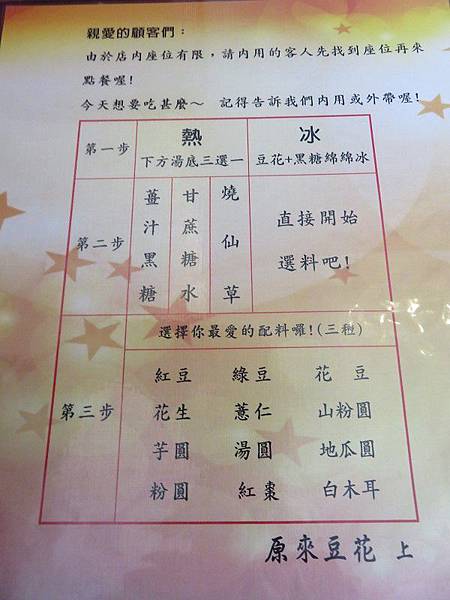 親愛的顧客們：
由於店內座位有限，請內用的客人先找到座位再來
點餐喔!
今天想要吃甚麼～ 記得告訴我們內用或外帶喔!
第一步
熱
下方湯底三選一
冰
豆花+黑糖綿綿冰
第二步
薑汁黑糖
甘蔗糖水
燒仙草
直接開始
選料吧!
第三步
選擇你最愛的配料囉!(三種)
紅豆 綠豆 花 豆
花生 薏仁 山粉圓
芋圓 湯圓 地瓜圓
粉圓 紅棗 白木耳
原來豆花 上